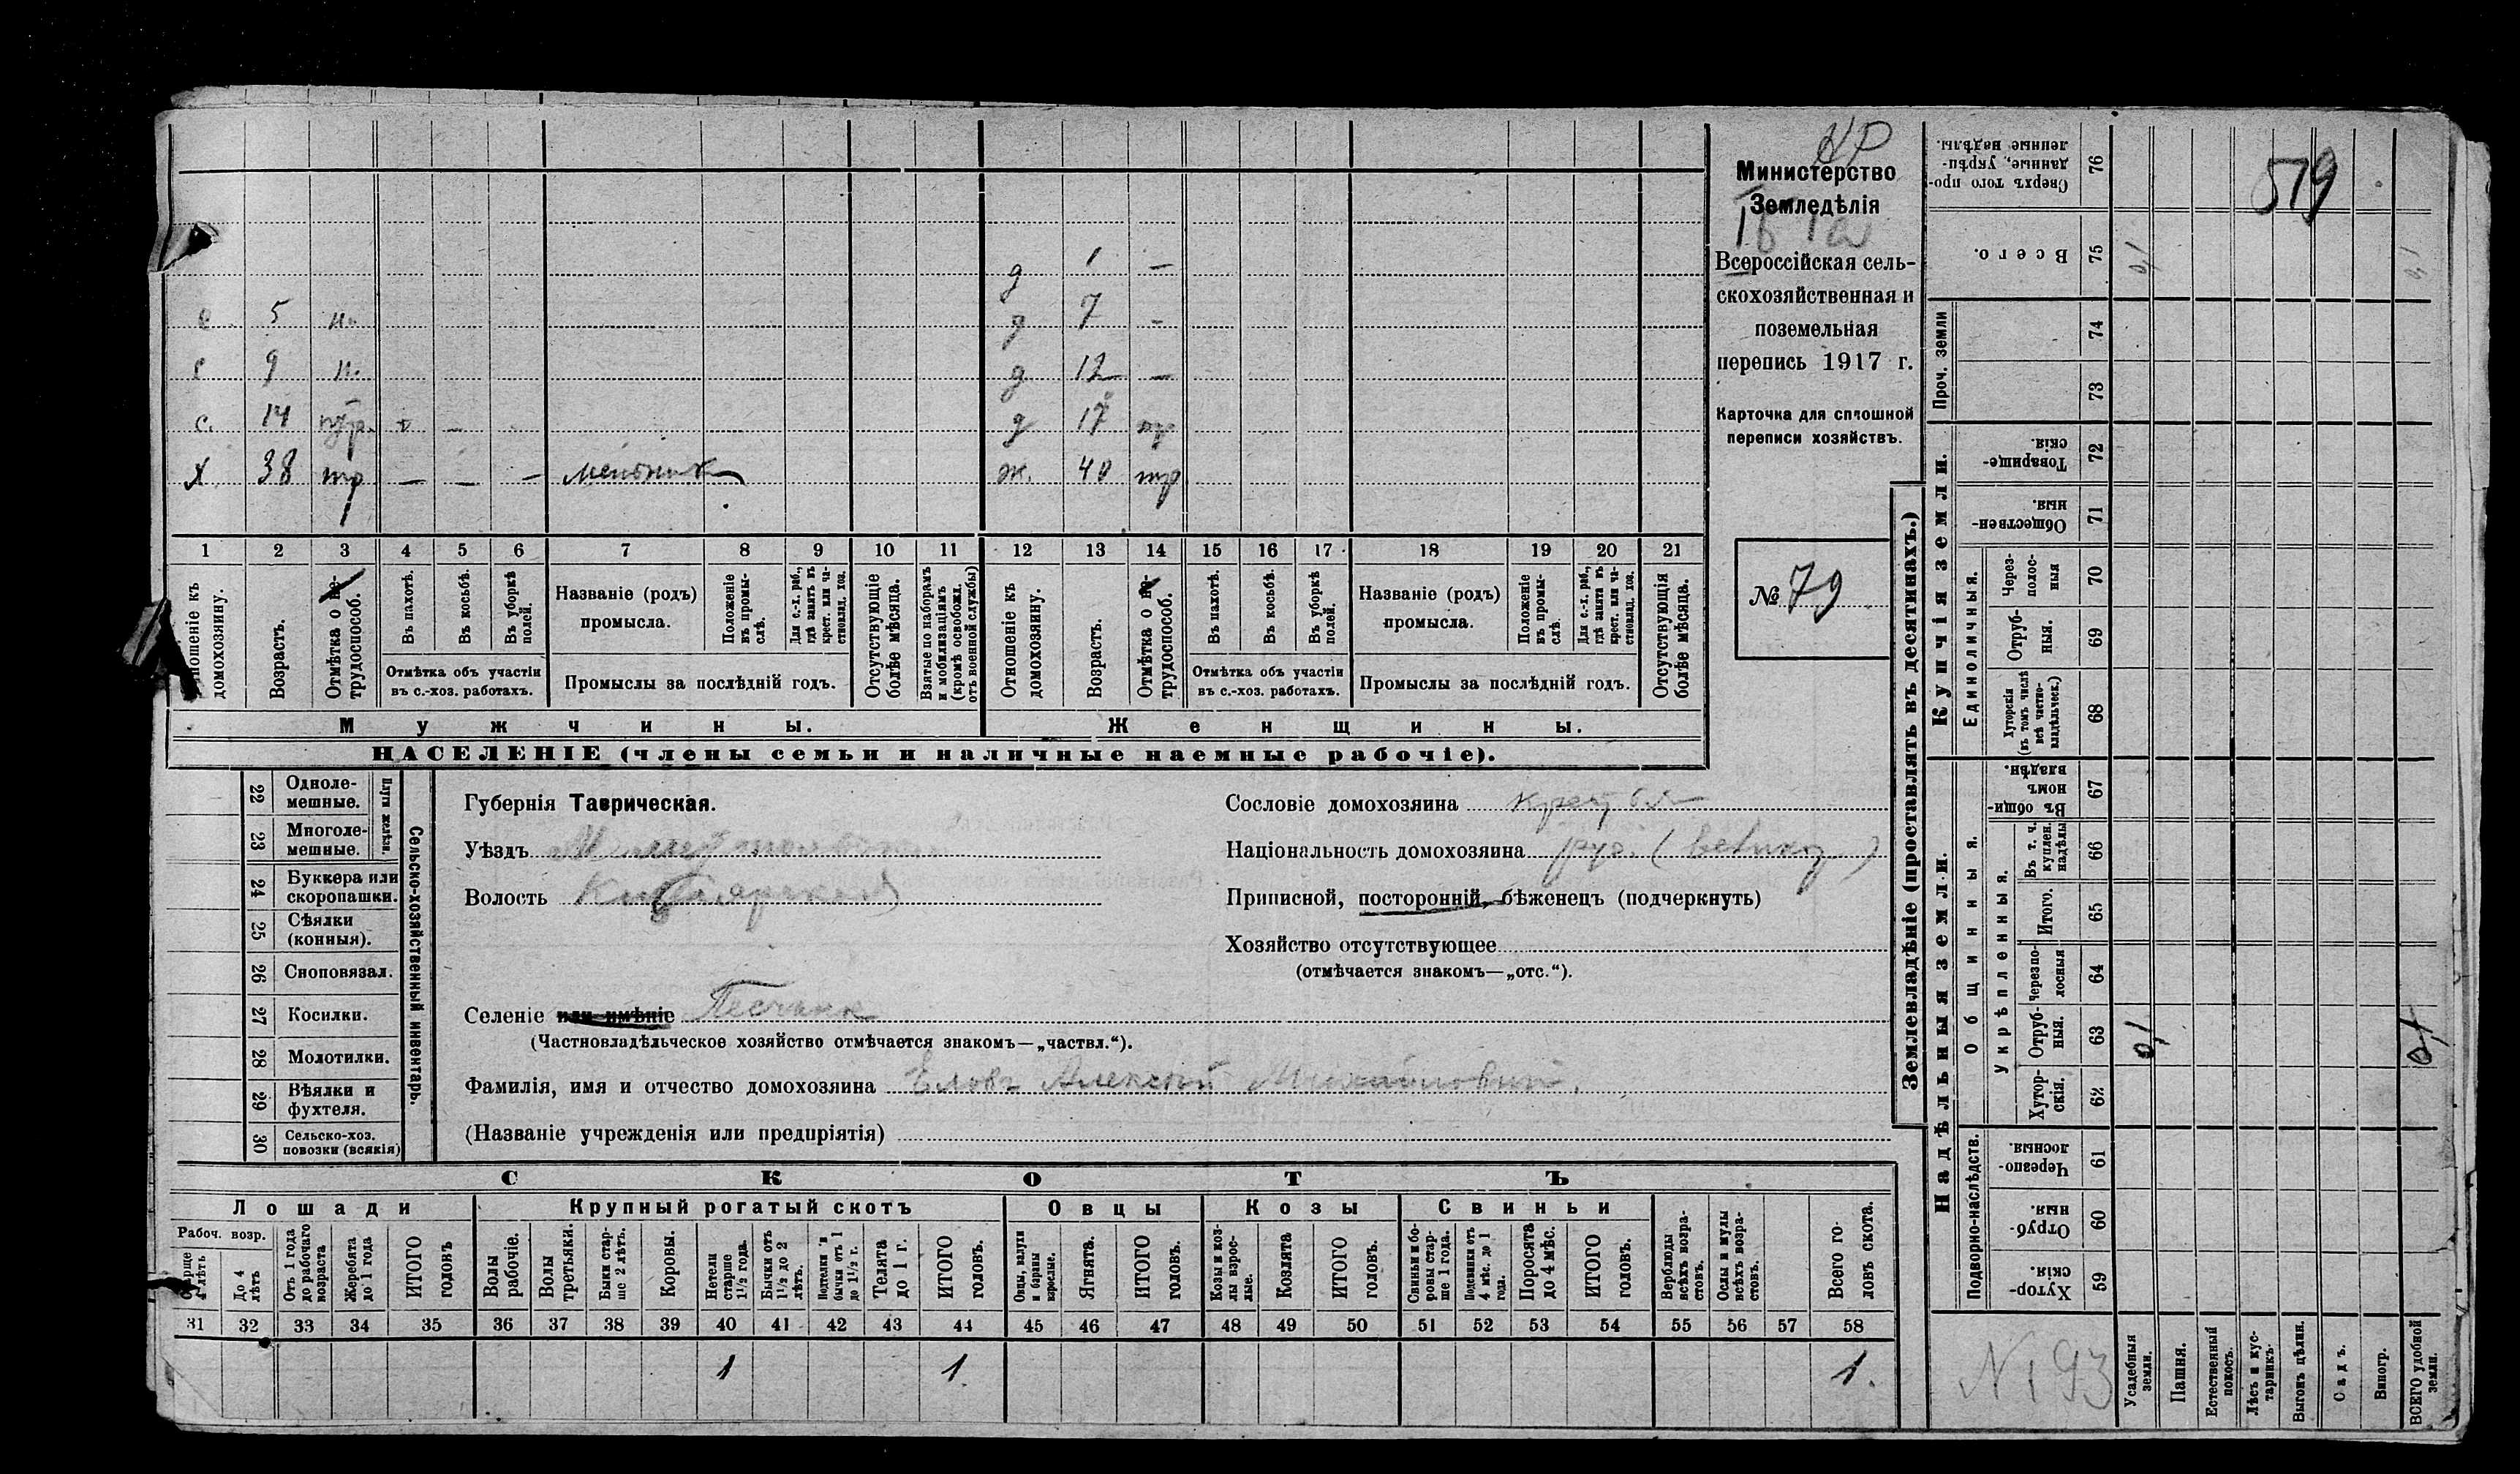 НР
519
Министерство
Земледѣлія
Всероссійская сель-
скохозяйственная и
поземельная
перепись 1917 г.
Карточка для сплошной
переписи хозяйствъ.
№ 79
д 1 —
с 5 н. д 7 -
с 9 н. д 12 —
с. 14 д 17
Х 38 тр — — — мельник ж. 40 тр
1 2 3 4 5 6 7 8 9 10 11 12 13 14 15 16 17 18 19 20 21
домохозяину.
Возрастъ.
Отмѣтка о не-
трудоспособ.
Въ пахотѣ.
Въ косьбѣ.
Въ уборкѣ
полей.
Отмѣтка объ участіи
въ с.-хоз. работахъ.
Названіе (родъ)
промысла.
Положеніе
въ промы-
слѣ.
Для с.-х. раб.,
гдѣ занятъ въ
крест. или ча-
стновлад. хоз.
Промыслы за послѣдній годъ.
Отсутствующіе
болѣе мѣсяца.
Взятые по наборамъ
и мобилизаціямъ
(кромѣ освобожд.
отъ военной службы)
Отношеніе къ
домохозяину.
Возрастъ.
Отмѣтка о не-
трудоспособ.
Въ пахотѣ.
Въ косьбѣ.
Въ уборкѣ
полей.
Отмѣтка объ участіи
въ с.-хоз. работахъ.
Названіе (родъ)
промысла.
Положеніе
въ промы-
слѣ.
Для с.-х. раб.,
гдѣ занята въ
крест. или ча-
стновлад. хоз.
Промыслы за послѣдній годъ.
Отсутствующія
болѣе мѣсяца.
Мужчины. Женщины.
НАСЕЛЕНІЕ (члены семьи и наличные наемные рабочіе).
Сельско-хозяйственный инвентарь.
Плуги желѣзн.
22 Одноле-
мешные.
23 Многоле-
мешные.
24 Буккера или
скоропашки.
25 Сѣялки
(конныя).
26 Сноповязал.
27 Косилки.
28 Молотилки.
29 Вѣялки и
фухтеля.
30 Сельско-хоз.
повозки (всякія)
Губернія Таврическая.
Уѣздъ
Волость
Селеніе или имѣніе Песчана
(Частновладѣльческое хозяйство отмѣчается знакомъ—„частвл.“).
Фамилія, имя и отчество домохозяина Еловъ Алексѣй Михайловий.
(Названіе учрежденія или предпріятія)
Сословіе домохозяина
Національность домохозяина рус. (великор.)
Приписной, посторонній, бѣженецъ (подчеркнуть)
Хозяйство отсутствующее
(отмѣчается знакомъ—„отс.“).
СКОТЪ
Лошади Крупный рогатый скотъ Овцы Козы Свиньи
Рабоч. возр.
Старше
4 лѣтъ
До 4
лѣтъ
Отъ 1 года
до рабочаго
возраста
Жеребята
до 1 года
ИТОГО
головъ
Волы
рабочіе.
Волы
третьяки.
Быки стар-
ше 2 лѣтъ.
Коровы.
Нетели
старше
1½ года.
Бычки отъ
1½ до 2
лѣтъ.
Подтелки и
бычки отъ 1
до 1½ г.
Телята
до 1 г.
ИТОГО
головъ.
Овцы, валухи
и бараны
взрослые.
Ягнята.
ИТОГО
головъ.
Козы и коз-
лы взрос-
лые.
Козлята
ИТОГО
головъ.
Свиньи и бо-
ровы стар-
ше 1 года.
Подсвинки отъ
4 мѣс. до 1
года.
Поросята
до 4 мѣс.
ИТОГО
головъ.
Верблюды
всѣхъ возра-
стовъ.
Ослы и мулы
всѣхъ возра-
стовъ.
Всего го-
ловъ скота.
31 32 33 34 35 36 37 38 39 40 41 42 43 44 45 46 47 48 49 50 51 52 53 54 55 56 57 58
1 1. 1.
Землевладѣніе (проставлять въ десятинахъ.)
Сверхъ того про-
данные, укрѣп-
ленные надѣлы. 76
Всего. 75
Проч. земли 74 73
Купчія земли.
Товарище-
скія. 72
Обществен-
ныя. 71
Единоличныя.
Через-
полос-
ныя 70
Отруб-
ныя. 69
Хуторскія
(въ томъ числѣ
всѣ частно-
владѣльческ.) 68
Надѣльныя земли.
Общинныя.
Въ общин-
номъ
владѣн. 67
Укрѣпленныя.
Въ т. ч.
куплен.
надѣлы 66
Итого. 65
Черезпо-
лосныя 64
Отруб-
ныя. 63 0,1 0,1
Хутор-
скія. 62
Подворно-наслѣдств.
Черезпо-
лосныя 61
Отруб-
ныя. 60
Хутор-
скія. 59
N 193
Усадебныя
земли.
Пашня.
Естественный
покосъ.
Лѣсъ и кус-
тарникъ.
Выгонъ цѣлин.
Садъ.
Виногр.
ВСЕГО удобной
земли.